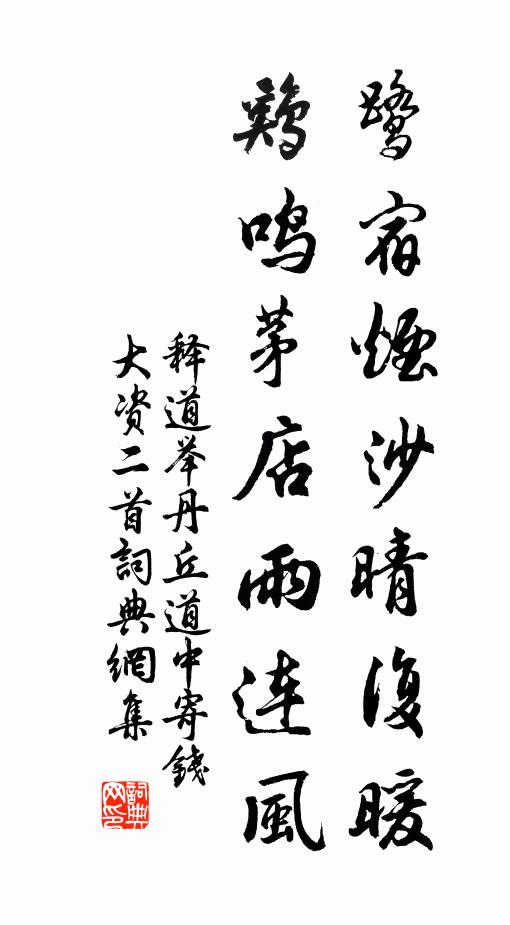 鹭宿煙沙晴復暖
鷄鳴茅店雨连風
释道举丹丘道中寄錢
大资二首詞典網集
詞典
网印